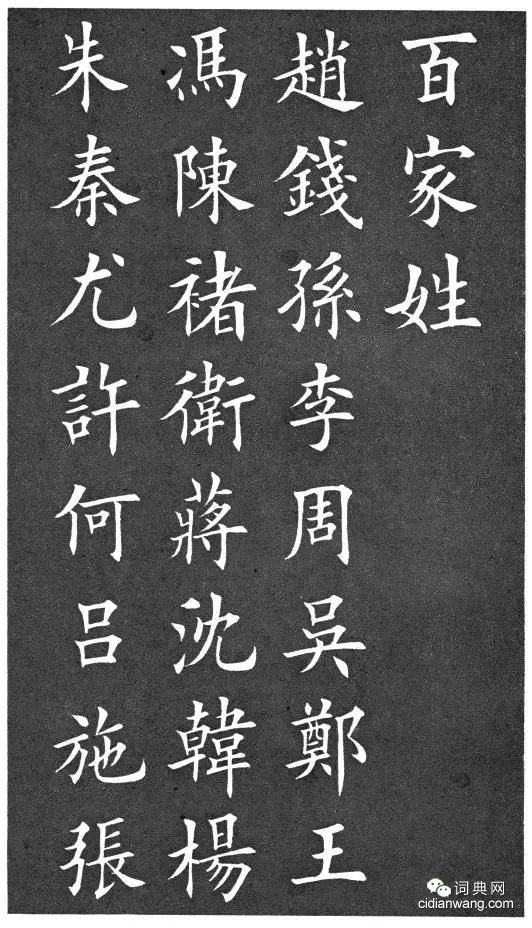 百家姓
趙錢孫李周吳鄭王
馮陳褚衛蔣沈韓楊
朱秦尤許何呂施張
词典网
cidianwang.com